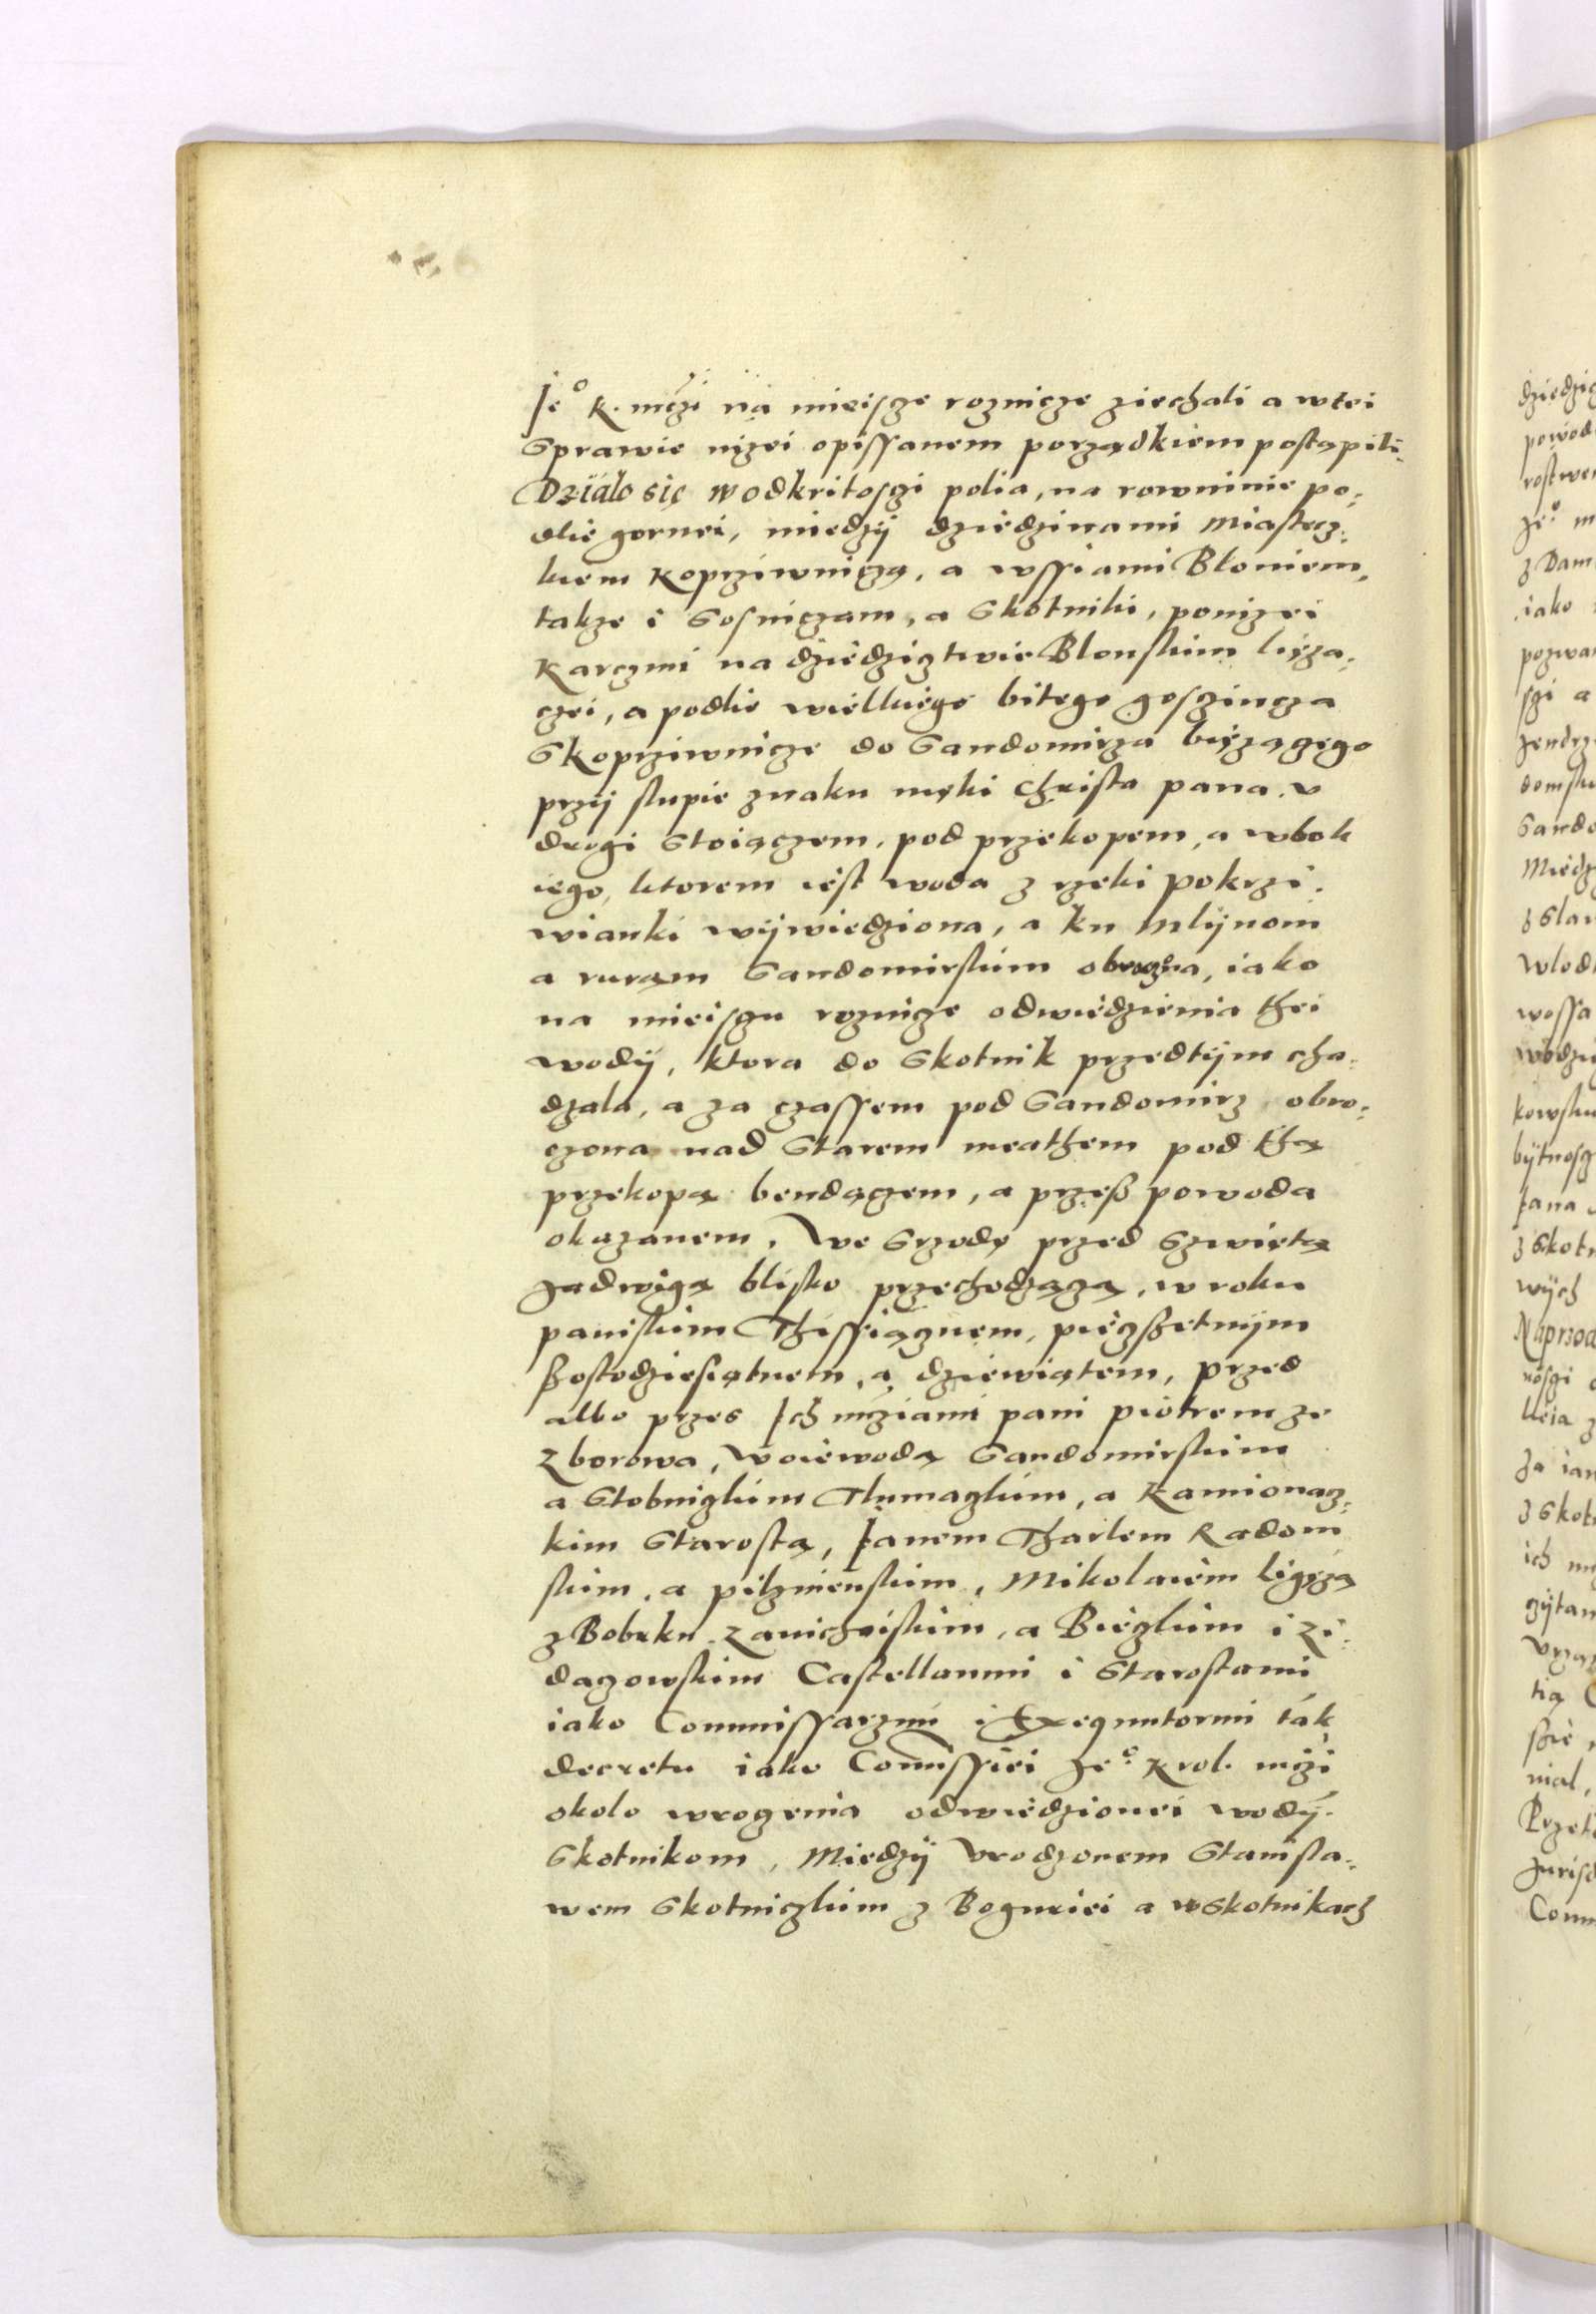 Ie° K. mczi na mieiscze roznicze ziechali a wtei
Sprawie nizei opissanem porządkiem postąpili.
Działo się w odkritosczi polia, na rowninie po:
dlie gornei, miedzÿ dziedzinami Miastecz:
kiem Koprziwniczą, a wssiami Błoniem,
takze i Sosniczam, a Skotniki, ponizei
Karczmi na dziedzicztwie Blonskim lieza:
czei, a podlie wielkiego bitego goszczincza
Skoprziwnicze do Sandomirza biezączego
przÿ slupie znaku męki Christa pana. v
drogi Stoiączem, pod przekopem, a wbok
iego, ktorem iest woda z rzeki Pokrzi:
wianki wÿwiedziona, a ku Mlÿnom
a ruram Sandomirskim obroczona, iako
na mieisczu roznicze odwiedzienia thei
wodÿ, ktora do Skotnik przedtÿm cha:
dzala, a za czassem pod Sandomirz obro:
czona nad Starem meathem pod thą
przekopą bendączem, a przeß powoda
okazanem. We Srzodę przed Szwiętą
Jadwigą blisko przechodzączą, w roku
paniskim Thissiącznem, pięczßetnÿm
ßostodziesiątnem, a dziewiątem, przed
albo przes Ich mcziami pani piotrem ze
Zborowa, Woiewodą Sandomirskim
a Stobniczkim Tlumaczkim, a Kamionacz:
kim Starostą, Ianem Tharlem Radom
skim, a pilznienskim, Mikolaiem ligęzą
z Bobrku Zawichoiskim, a Bieczkim i Zi:
daczowskim Castellanmi i Starostami
iako Commissarzmi i Exequutormi tak
decretu iako Comissiei Je° Krol. mczi
okolo wroczenia odwiedzionei wodÿ
Skotnikom, Miedzÿ Vrodzonem Stanisla:
wem Skotniczkim z Boguriei a w Skotnikach